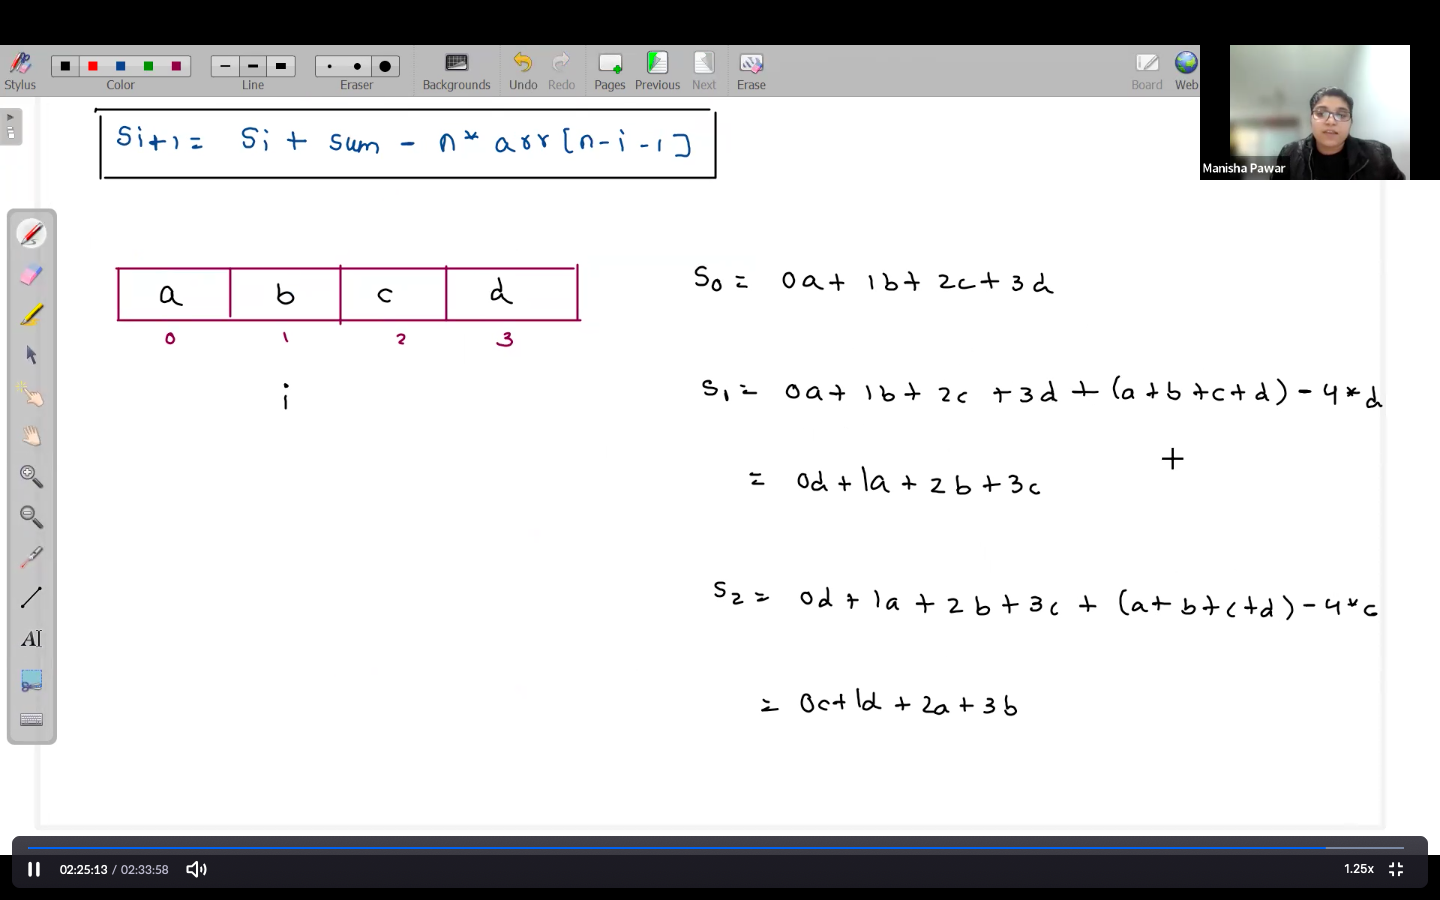 Stylus Color Line Eraser Backgrounds Undo Redo Pages Previous Next Erase Board Web
Manisha Pawar
Si+1 = Si + sum - n* arr [n-i-1]
a b c d
0 1 2 3
i
S0 = 0a + 1b + 2c + 3d
S1 = 0a + 1b + 2c + 3d + (a + b + c + d) - 4*d
= 0d + 1a + 2b + 3c
S2 = 0d + 1a + 2b + 3c + (a + b + c + d) - 4*c
= 0c + 1d + 2a + 3b
AI
02:25:13 / 02:33:58 1.25x